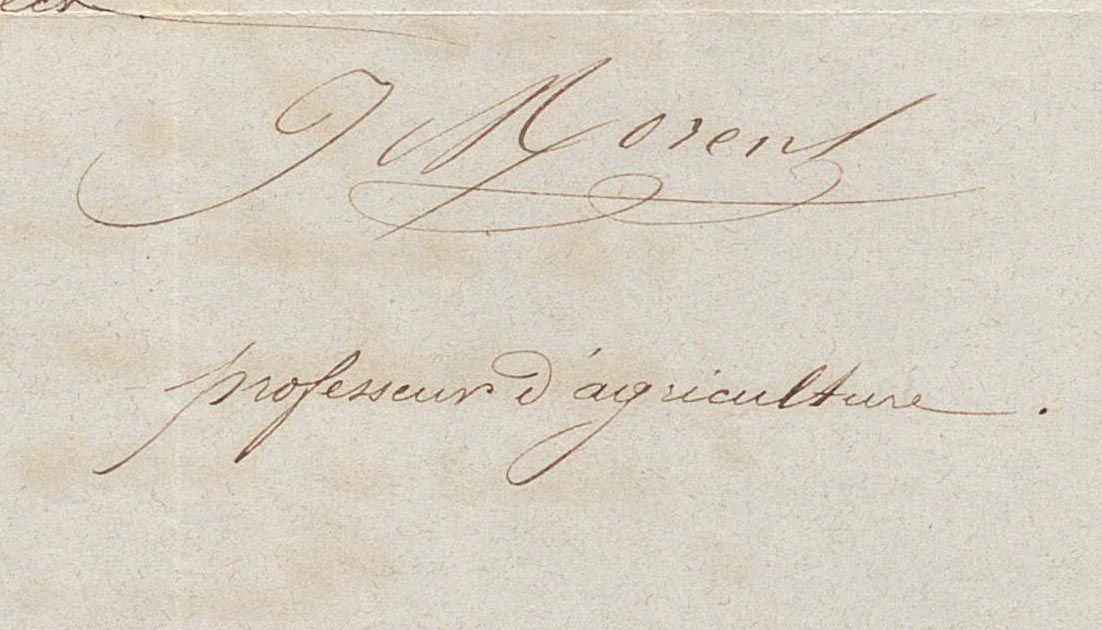 J Morent
professeur d'agriculture.